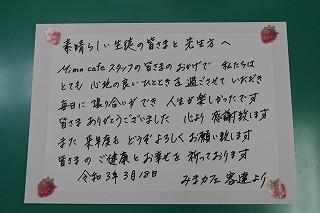 素晴らしい生徒の皆さまと先生方へ
Mima cafe スタッフの皆さまのおかげで 私たちは
とても 心地の良いひとときを過ごさせていただき
毎日に張り合いができ 人生が楽しかったです
皆さまありがとうございました 心より感謝致します
また 来年度も どうぞよろしくお願い致します
皆さまの ご健康とお幸せを祈っております
令和3年3月18日 みまカフェ 客達より